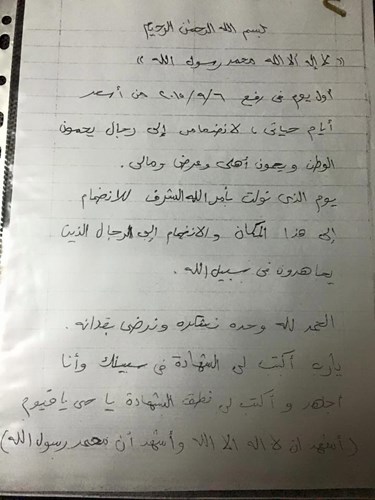 بسم الله الرحمن الرحيم
« لا إله إلا الله محمد رسول الله »
أول يوم فى رفح ٢٠١٥/٩/٦ من أسعد
أيام حياتى ، لانضمامى إلى رجال يحمون
الوطن ويحمون أهلى وعرضى ومالى .
يوم الذى نولت بأمر الله الشرف للانضمام
إلى هذا المكان والانضمام إلى الرجال الذين
يجاهدون فى سبيل الله .
الحمد لله وحده نشكره ونرضى بقدائه .
يارب أكتب لى الشهادة فى سبيلك وأنا
أجاهد وأكتب لى نطق الشهادة يا حى يا قيوم
( أشهد ان لا اله الا الله وأشهد أن محمد رسول الله )